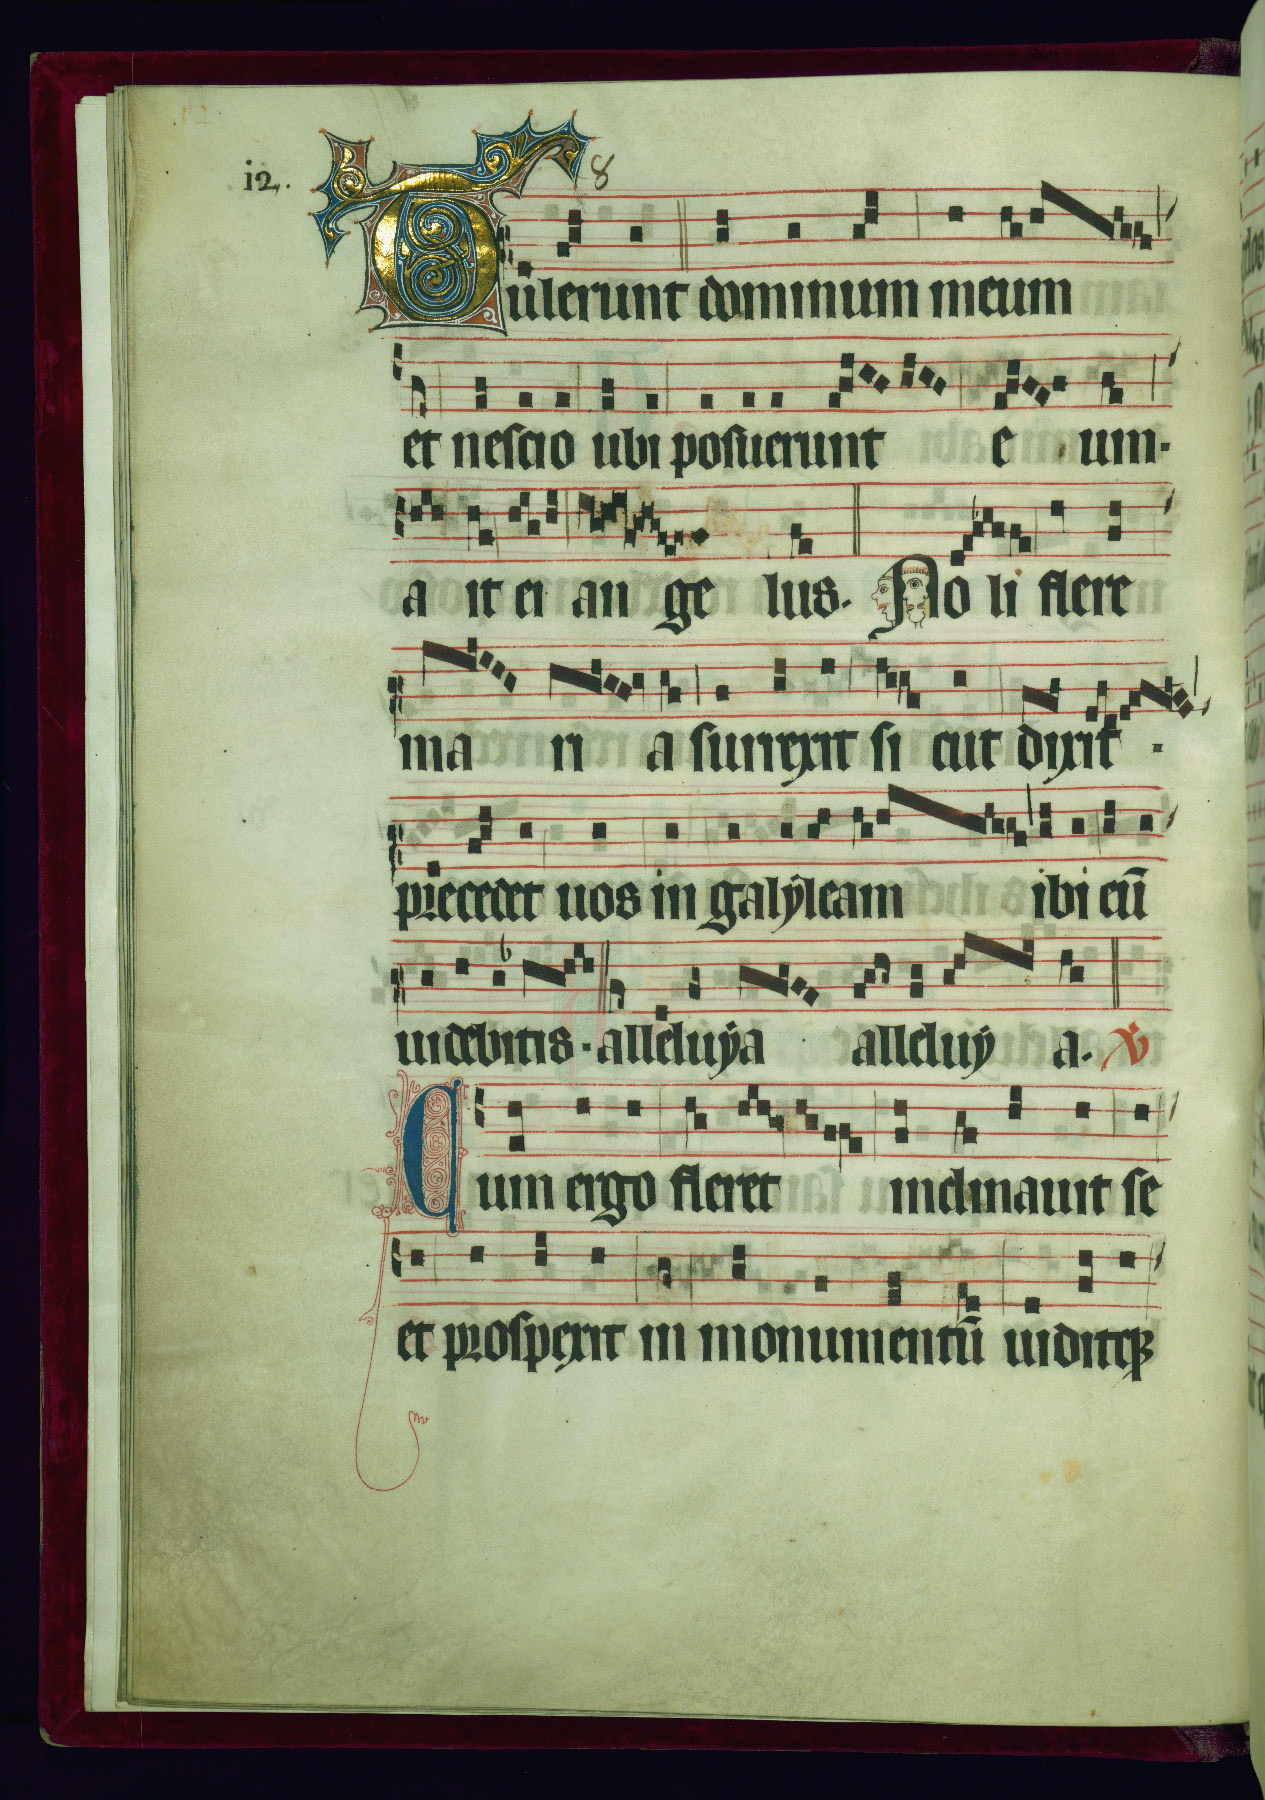 i2. 8
Tulerunt dominum meum
et nescio ubi posuerunt e um.
a it ei an ge lus. No li flere
ma ri a surrexit si cut dixit .
precedet uos in galyleam ibi cū
uidebitis. alleluya alleluy a. V
Cum ergo fleret inclinauit se
et prospexit in monumentū uiditqꝫ